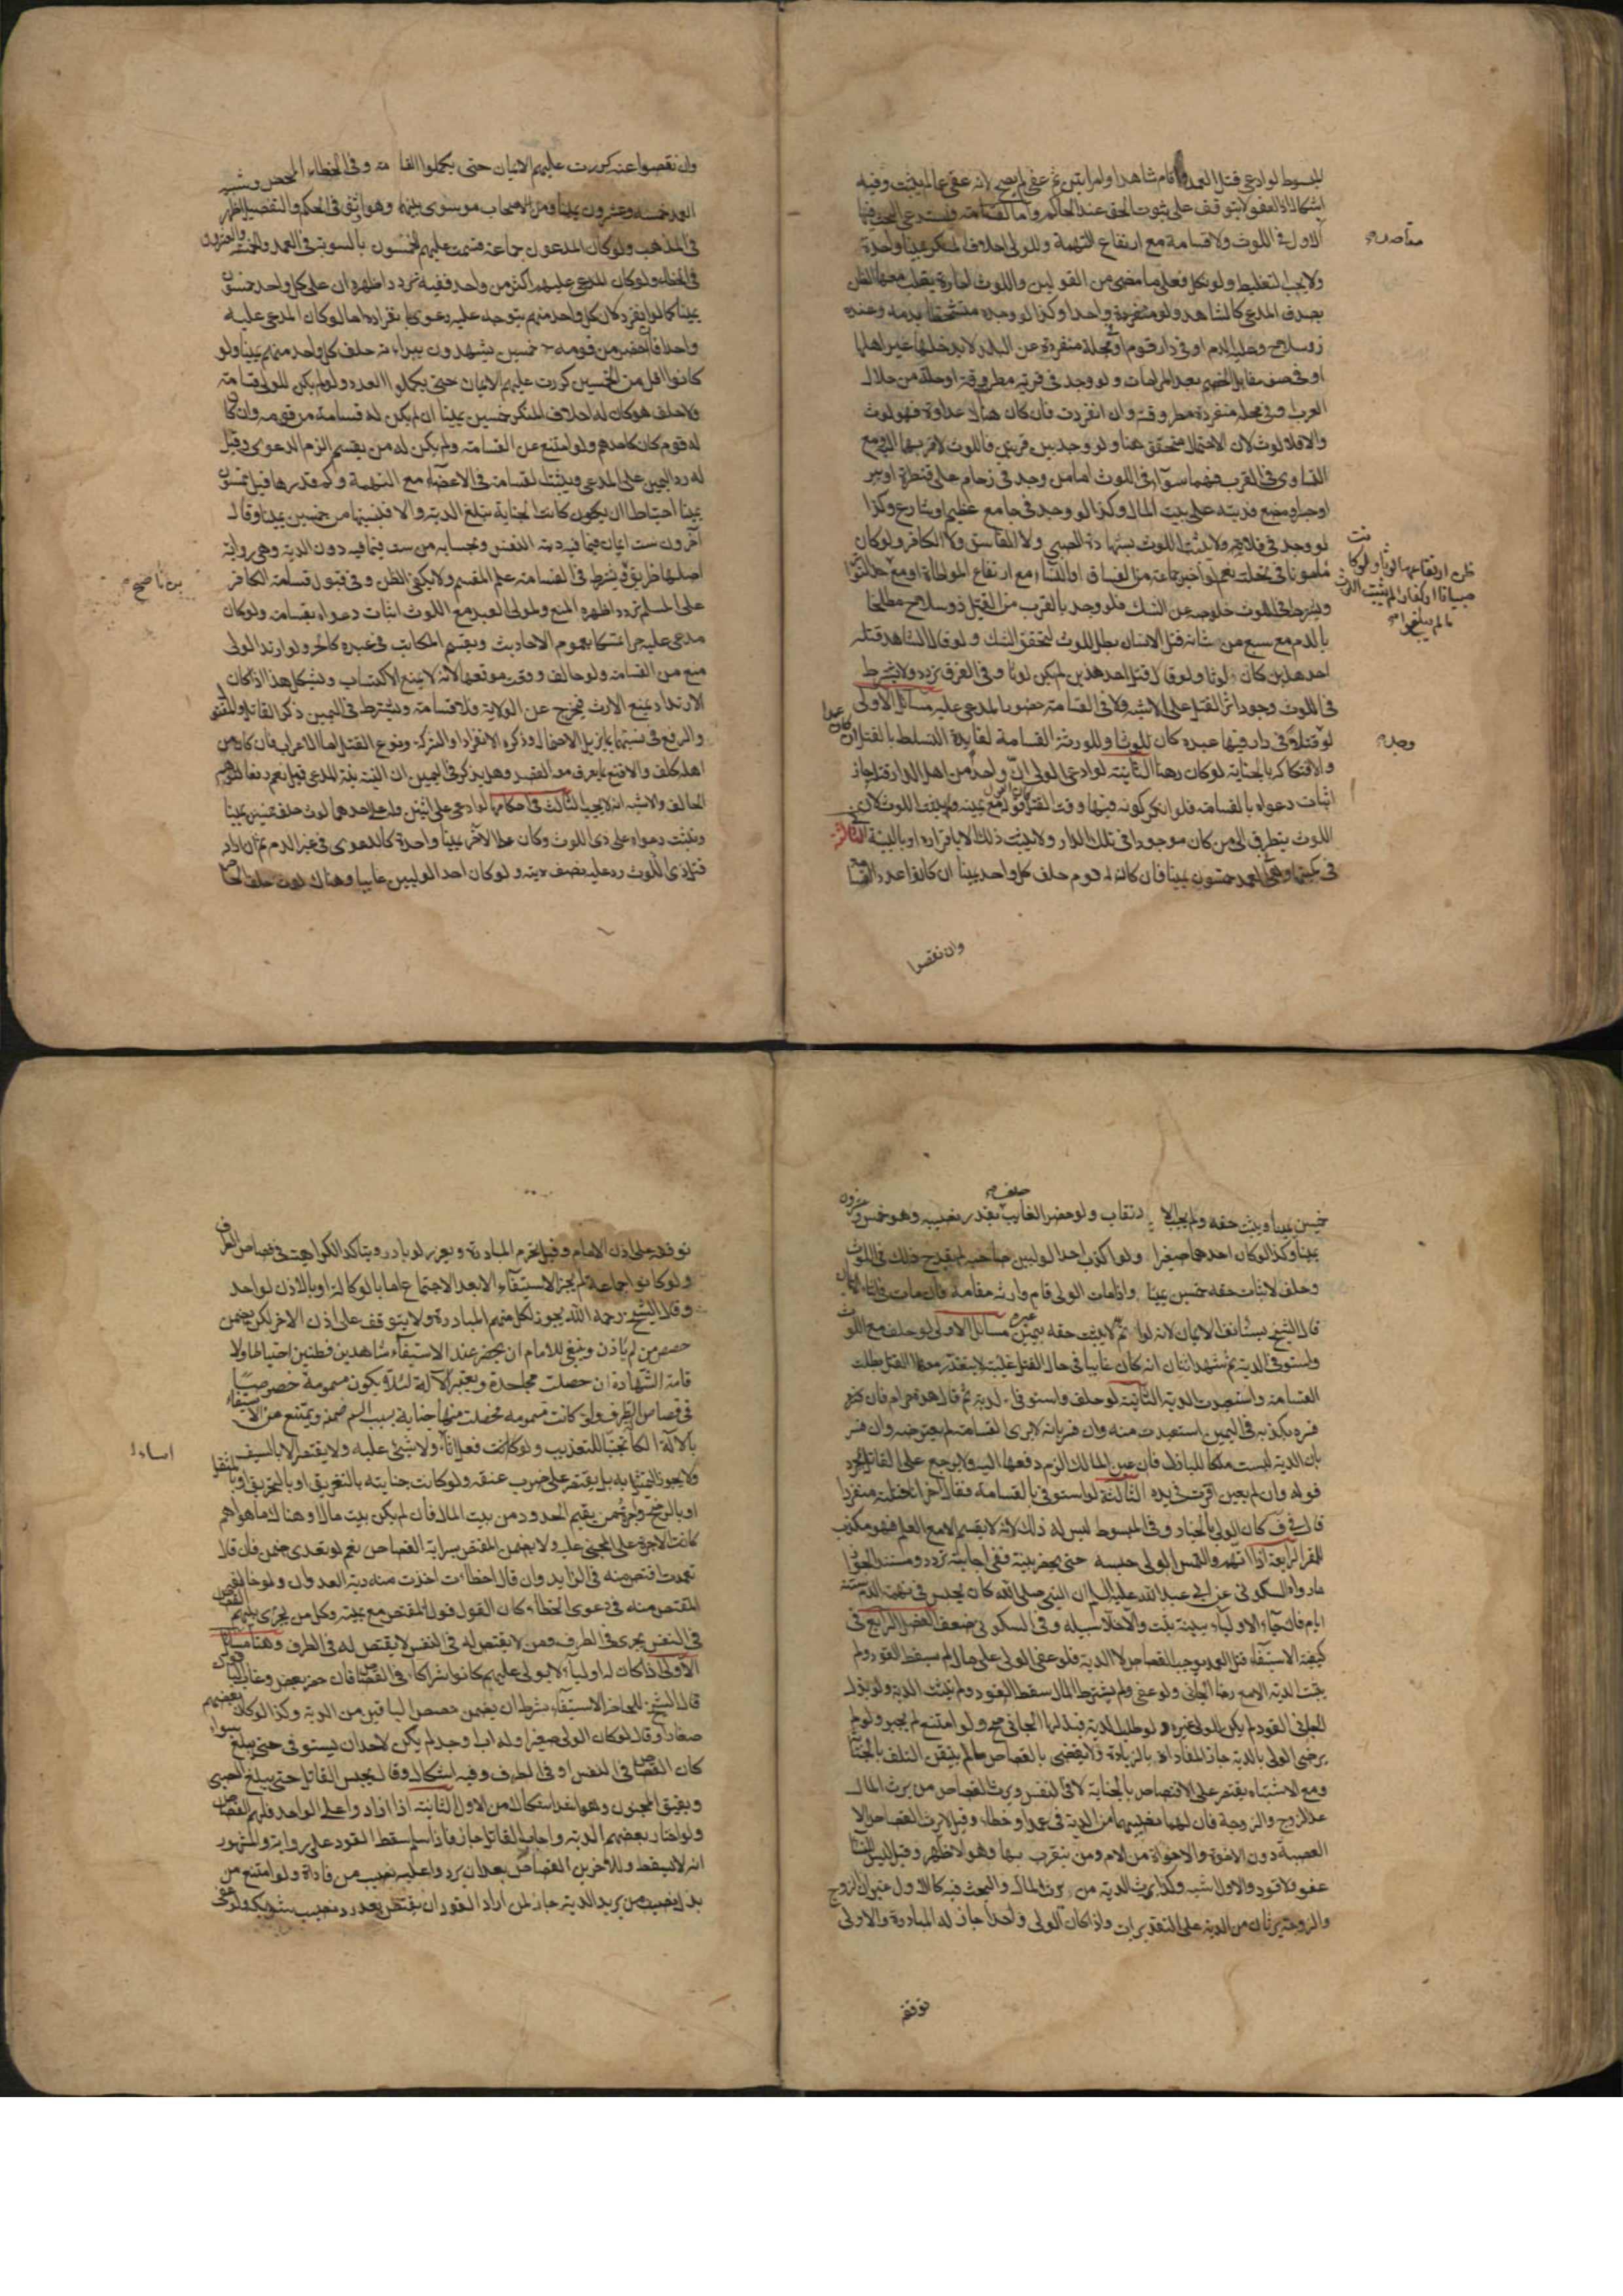 المبسوط لو ادعى قتل العمد واقام شاهدا وامراتين ثم عفى لم يصح لانه عفى عما لم يثبت وفيه
اشكال اذ العفو لا يتوقف على ثبوت الحق عند الحاكم واما القسامة فيستدعى البحث فيها مقاصد
الاول فى اللوث ولا قسامة مع ارتفاع التهمة وللولى احلاف المنكر يمينا واحدة
ولا يجب التغليظ ولو نكل فعلى ما مضى من القولين واللوث امارة يغلب معها الظن
بصدق المدعى كالشاهد ولو واحدا وكذا لو وجده متشحطا بدمه وعنده
ذو سلاح وعليه الدم او فى دار قوم او محلة منفردة عن البلد لا يدخلها غير اهلها
او فى صف مقابل الخصم بعد المراماة ولو وجد فى قرية مطروقة او حلة من حلال
العرب او فى محلة منفردة مطروقة وان انفردت فان كان هناك عداوة فهو لوث
والا فلا لوث لان الاحتمال متحقق هنا ولو وجد بين قريتين فاللوث لاقربهما اليه ومع
التساوى فى القرب فهما سواء فى اللوث اما من وجد فى زحام على قنطرة او بير
او جسر او مصنع فديته على بيت المال وكذا لو وجد فى جامع عظيم او شارع وكذا
لو وجد فى فلاة ولا يثبت اللوث بشهادة الصبى ولا الفاسق ولا الكافر ولو كان
مامونا فى نحلته نعم لو اخبر جماعة من الفساق او النساء مع ارتفاع المواطاة او مع
ظن ارتفاعها كان لوثا ولو كانت صبيانا او كفارا لم يثبت اللوث ما لم يبلغوا
ويشترط فى اللوث خلوصه عن الشك فلو وجد بالقرب من القتيل ذو سلاح متلطخا
بالدم مع سبع من شانه قتل الانسان بطل اللوث لتحقق الشك ولو قال الشاهد قتله
احد هذين كان لوثا ولو قال قتل احد هذين لم يكن لوثا وفى الفرق تردد ولا يشترط
فى اللوث وجود اثر القتل على الاشبه ولا فى القسامة حضور المدعى عليه مسائل الاولى
لو وجد قتيلا فى دار فيها عبده كان لوثا وللورثة القسامة لفايدة التسلط بالقتل ان كان عمدا
والافتكاكه بالجناية لو كان رهنا الثانية لو ادعى الولى ان واحدا من اهل الدار قتله جاز
اثبات دعواه بالقسامة فلو انكر كونه فيها وقت القتل كان القول قوله مع يمينه ولم يثبت اللوث لان
اللوث يتطرق الى من كان موجودا فى تلك الدار ولا يثبت ذلك الا باقراره او بالبينة الثانى
فى كميتها وهى فى العمد خمسون يمينا فان كان له قوم حلف كل واحد يمينا ان كانوا عدد القسامة
وان نقصوا
وان نقصوا عنه كررت عليهم الايمان حتى يكملوا القسامة وفى الخطاء المحض وشبيه
العمد خمسة وعشرون يمينا ومن الاصحاب من سوى بينهما وهو اوثق فى الحكم والتفصيل اظهر
فى المذهب ولو كان المدعون جماعة قسمت عليهم الخمسون بالسوية فى العمد والخمسة والعشرون
فى الخطاء ولو كان المدعى عليهم اكثر من واحد ففيه تردد اظهره ان على كل واحد خمسين
يمينا كما لو انفرد لان كل واحد منهم يتوجه عليه دعوى بانفراده اما لو كان المدعى عليه
واحدا فاحضر من قومه خمسين يشهدون ببراءته حلف كل واحد منهم يمينا ولو
كانوا اقل من الخمسين كررت عليهم الايمان حتى يكملوا العدد ولو لم يكن للولى قسامة
ولا حلف هو كان له احلاف المنكر خمسين يمينا ان لم يكن له قسامة من قومه وان كان
له قوم كان كاحدهم ولو امتنع عن القسامة ولم يكن له من يقسم الزم الدعوى وقيل
له رد اليمين على المدعى ويثبت القسامة فى الاعضاء مع التهمة وكم قدرها قيل خمسون
يمينا احتياطا ان كانت الجناية تبلغ الدية والا فبنسبتها من خمسين يمينا وقال
آخرون ست ايمان فيما فيه دية النفس وبحسابه من ست فيما فيه دون الدية وهى رواية
اصلها ظريف ويشترط فى القسامة علم المقسم ولا يكفى الظن وفى قبول قسامة الكافر بن ناصح
على المسلم تردد اظهره المنع ولمولى العبد مع اللوث اثبات دعواه بقسامة ولو كان
مدعى عليه حرا تمسكا بعموم الاحاديث ويقسم المكاتب فى عبده كالحر ولو ارتد الولى
منع من القسامة ولو حالف وقعت موقعها لانه لا يمنع الاكتساب ويشكل هذا اذا كان
الارتداد يمنع الارث فيخرج عن الولاية فلا قسامة ويشترط فى اليمين ذكر القاتل والمقتول
والرفع فى نسبهما بما يزيل الاحتمال وذكر الانفراد او الشركة ونوع القتل اما الاعراب فان كان من
اهله كلف والا قنع بما يعرف معه القصد وهل يذكر فى اليمين ان النية نية المدعى قيل نعم دفعا لتوهم
الحالف والاشبه انه لا يجب الثالث فى احكامها لو ادعى على اثنين وله على احدهما لوث حلف خمسين يمينا
وثبتت دعواه على ذى اللوث وكان على الآخر يمينا واحدة كالدعوى فى غير الدم ثم ان اراد
قتل ذى اللوث رد عليه نصف ديته ولو كان احد الوليين غايبا وهناك لوث حلف الحاضر
خمسين يمينا ويثبت حقه ولم يجب الارتقاب ولو حضر الغايب حلف بقدر نصيبه وهو خمس وعشرون
يمينا وكذا لو كان احدهما صغيرا ولو اكذب احد الوليين صاحبه لم يقدح ذلك فى اللوث
وحلف لاثبات حقه خمسين يمينا واذا مات الولى قام وارثه مقامه فان مات فى اثناء الايمان
قال الشيخ يستانف الايمان لانه لو اتم لاثبت حقه بيمين غيره مسائل الاولى لو حلف مع اللوث
واستوفى الدية ثم شهد اثنان انه كان غايبا فى حال القتل غيبة لا يتقدر معها القتل بطلت
القسامة واستعيدت الدية الثانية لو حلف واستوفى الدية ثم قال هذه حرام فان
فسره بكذبه فى اليمين استعيدت منه وان فسر بانه لا يرى القسامة لم يعترضه وان فسر
بان الدية ليست ملكا للباذل فان عين المالك الزم دفعها اليه ولا يرجع على القاتل بمجرد
قوله وان لم يعين اقرت فى يده الثالثة لو استوفى بالقسامة فقال آخر انا قتلته منفردا
قال فى ف كان الولى بالخيار وفى المبسوط ليس له ذلك لانه لا يقسم الا مع العلم فهو مكذب
للمقر الرابعة اذا اتهم والتمس الولى حبسه حتى يحضر بينة ففى اجابته تردد ومستند الجواز
ما رواه السكونى عن ابى عبد الله عليه السلام ان النبى صلى الله كان يحبس فى تهمة الدم ستة
ايام فان جاء الاولياء ببينة ثبت والا خلا سبيله وفى السكونى ضعف الفصل الرابع فى
كيفية الاستيفاء قتل العمد يوجب القصاص لا الدية فلو عفى الولى على مال لم يسقط القود ولم
يثبت الدية الا مع رضا الجانى ولو عفى ولم يشترط المال سقط القود ولم يثبت الدية ولو بذل
الجانى القود لم يكن للولى غيره ولو طلب الدية فبذلها الجانى صح ولو امتنع لم يجبر ولو لم
يرض الولى بالدية جاز المفاداة بالزيادة ولا يقضى بالقصاص ما لم يتيقن التلف بالجناية
ومع الاشتباه يقتصر على الاقتصاص بالجناية لا فى النفس ويرث القصاص من يرث المال
عدا الزوج والزوجة فان لهما نصيبهما من الدية فى عمد او خطاء وقيل لا يرث القصاص الا
العصبة دون الاخوة والاخوات من الام ومن يتقرب بها وهو الاظهر وقيل ليس للنساء
عفو ولا قود والاول اشبه وكذا يرث الدية من يرث المال والبحث فيه كالاول غير ان الزوج
والزوجة يرثان من الدية على التقديرات واذا كان الولى واحدا جاز له المبادرة والاولى
توقفه
توقفه على اذن الامام وقيل تحرم المبادرة ويعزر لو بادر ويتاكد الكراهية فى قصاص الطرف
ولو كانوا جماعة لم يجز الاستيفاء الا بعد الاجتماع اما بالوكالة او بالاذن لواحد
وقال الشيخ رحمه الله يجوز لكل منهم المبادرة ولا يتوقف على اذن الاخر لكن يضمن
حصص من لم ياذن وينبغى للامام ان يحضر عند الاستيفاء شاهدين فطنين احتياطا ولا
قامة الشهادة ان حصلت مجاحدة ويعتبر الآلة لئلا يكون مسمومة خصوصا
فى قصاص الطرف ولو كانت مسمومة فحصلت منها جناية بسبب السم ضمنه ويمنع من الاستيفاء
بالآلة الكالة تجنبا للتعذيب ولو فعل اساء ولا شىء عليه ولا يقتص الا بالسيف
ولا يجوز التمثيل به بل يقتصر على ضرب عنقه ولو كانت جنايته بالتغريق او بالتحريق او بالمثقل
او بالرضخ واجرة من يقيم الحدود من بيت المال فان لم يكن بيت مال او هناك ما هو اهم
كانت الاجرة على المجنى عليه ولا يضمن المقتص سراية القصاص نعم لو تعدى ضمن فان قال
تعمدت اقتص منه فى الزايد وان قال اخطات اخذت منه دية العدوان ولو خالفه
المقتص منه فى دعوى الخطاء كان القول قول المقتص مع يمينه وكل من يجرى بينهم القصاص
فى النفس يجرى فى الطرف ومن لا يقتص له فى النفس لا يقتص له فى الطرف وهنا مسائل
الاولى اذا كان له اولياء لا يولى عليهم كانوا شركاء فى القصاص فان حضر بعض وغاب الباقون
قال الشيخ للحاضر الاستيفاء بشرط ان يضمن حصص الباقين من الدية وكذا لو كان بعضهم
صغارا وقال لو كان الولى صغيرا وله اب او جد لم يكن لاحد ان يستوفى حتى يبلغ سواء
كان القصاص فى النفس او فى الطرف وفيه اشكال وقال يحبس القاتل حتى يبلغ الصبى
ويفيق المجنون وهو اشد اشكالا من الاول الثانية اذا زادوا على الواحد فلهم القصاص
ولو اختار بعضهم الدية واجاب القاتل جاز فاذا سلم سقط القود على رواية والمشهور
انه لا يسقط وللآخرين القصاص بعد ان يردوا عليه نصيب من فاداه ولو امتنع من
بذل نصيب من يريد الدية جاز لمن اراد القود ان يقتص بعد رد نصيب شريكه ولو عفى